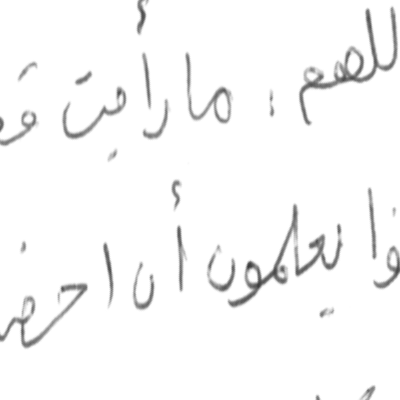 للهم : ما رأيت
وا يعلمون أن احضر